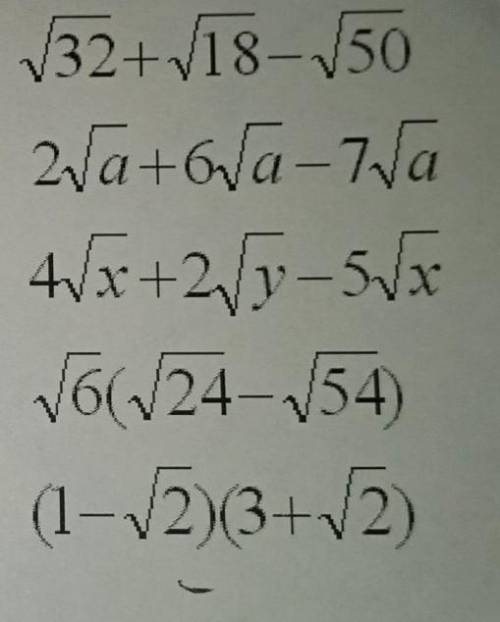 √32+√18−√50
2√a+6√a−7√a
4√x+2√y−5√x
√6(√24−√54)
(1−√2)(3+√2)